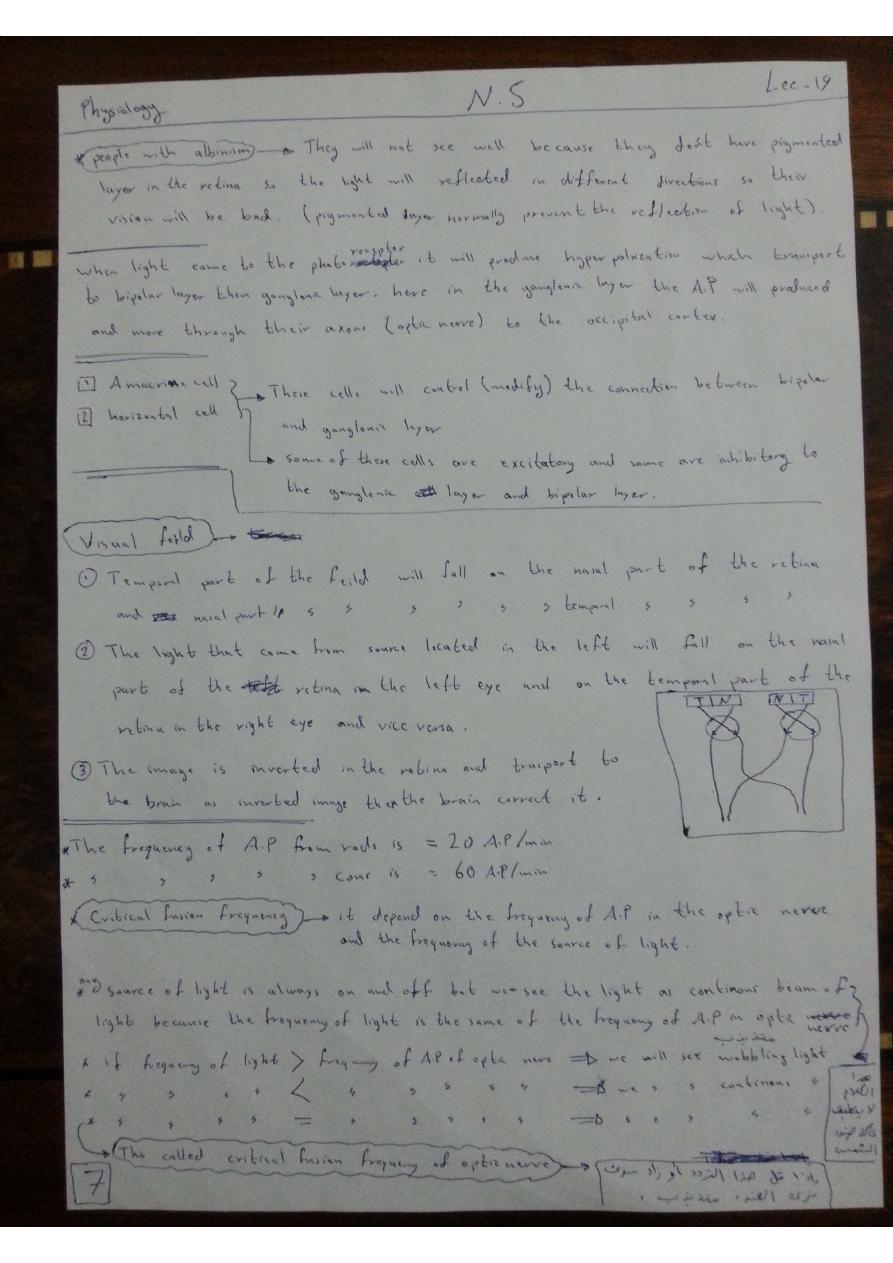 Physiology
N.S
Lec-19
* people with albinism → They will not see well because they don't have pigmented
layer in the retina so the light will reflected in different directions so their
vision will be bad. (pigmented layer normally prevent the reflection of light).
when light come to the photo receptor it will produce hyperpolrization which transport
to bipolar layer then ganglonic layer. here in the ganglonic layer the A.P will produced
and move through their axons (optic nerve) to the occipital cortex.
1 Amacrine cell
2 horizontal cell
→ These cells will control (modify) the connection between bipolar
and ganglonic layer
→ some of these cells are excitatory and some are inhibitory to
the ganglonic layer and bipolar layer.
Visual feild →
① Temporal part of the feild will fall on the nasal part of the retina
and nasal part // ، ، ، ، ، ، temporal ، ، ، ،
② The light that come from source located in the left will fall on the nasal
part of the retina in the left eye and on the temporal part of the
retina in the right eye and vice versa.
T | N N | T
③ The image is inverted in the retina and trasport to
the brain as inverted image then the brain correct it.
* The frequency of A.P from rods is = 20 A.P/min
* ، ، ، ، ، cons is = 60 A.P/min
* Critical fusion frequency → it depend on the frequency of A.P in the optic nerve
and the frequency of the source of light.
* any source of light is always on and off but we see the light as continous beam of
light because the frequency of light is the same of the frequency of A.P in optic nerve
متذبذب
* if frequency of light > frequency of A.P of optic nerve ⇒ we will see wobbling light
* ، ، ، ، < ، ، ، ، ، ⇒ we ، ، continous ،
* ، ، ، ، = ، ، ، ، ، ⇒ ، ، ، ، ،
هذا
الكلام
لا ينطبق
الشمس
This called critical fusion frequency of optic nerve →
هذا التردد أو زاد سوف
نرى الضوء متذبذب .
7